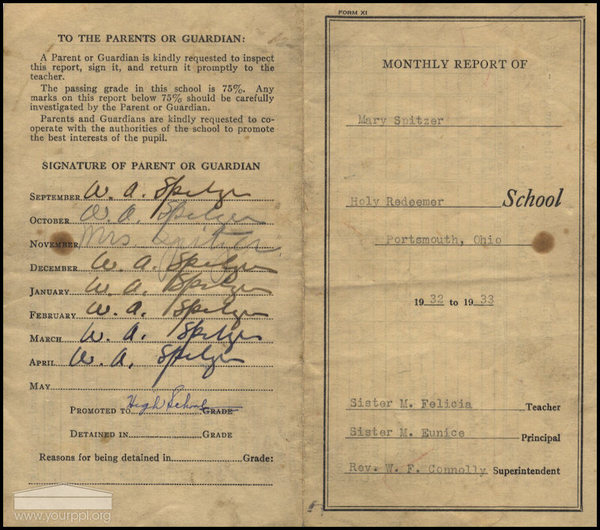 TO THE PARENTS OR GUARDIAN:
A Parent or Guardian is kindly requested to inspect
this report, sign it, and return it promptly to the
teacher.
The passing grade in this school is 75%. Any
marks on this report below 75% should be carefully
investigated by the Parent or Guardian.
Parents and Guardians are kindly requested to co-
operate with the authorities of the school to promote
the best interests of the pupil.
SIGNATURE OF PARENT OR GUARDIAN
SEPTEMBER W. A. Spitzer
OCTOBER W. A. Spitzer
NOVEMBER Mrs Spitzer
DECEMBER W. A. Spitzer
JANUARY W. A. Spitzer
FEBRUARY W. A. Spitzer
MARCH W. A. Spitzer
APRIL W. A. Spitzer
MAY
PROMOTED TO High School GRADE
DETAINED IN GRADE
Reasons for being detained in Grade:
www.yourppl.org
FORM XI
MONTHLY REPORT OF
Mary Spitzer
Holy Redeemer School
Portsmouth, Ohio
1932 to 1933
Sister M. Felicia Teacher
Sister M. Eunice Principal
Rev. W. F. Connolly Superintendent